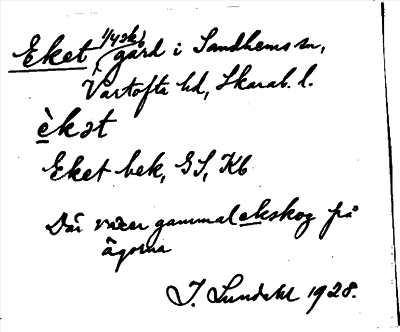 Eket 1/4 skt gård i Sandhems sn,
Vartofta hd, Skarab. l.
èkət
Eket bek, GS, Kb
Där växer gammal ekskog på
ägorna
I. Lundahl 1928.